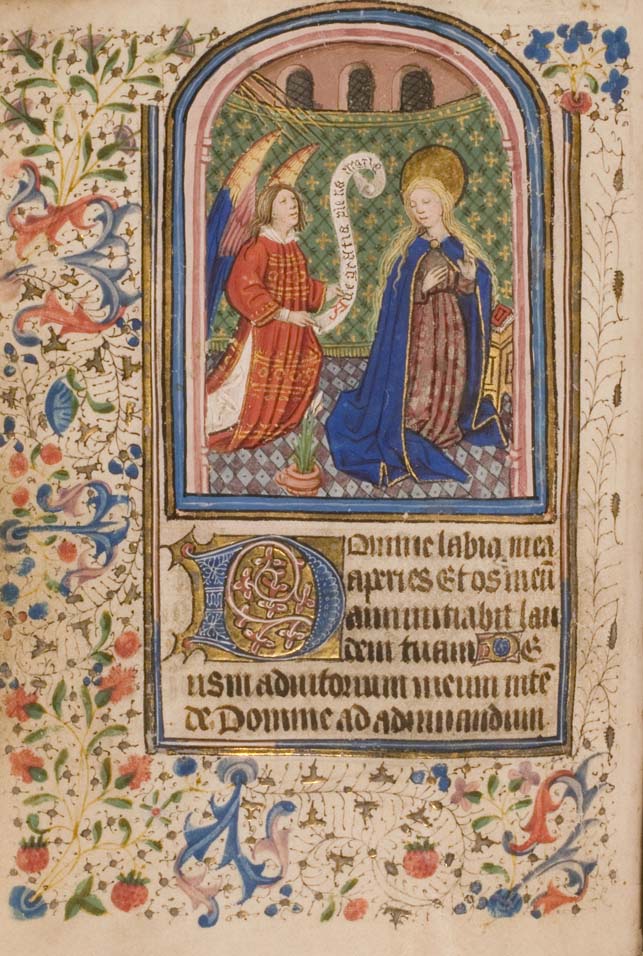 Aue gratia plena maria
Domine labia mea
aperies Et os meū
annuntiabit lau
dem tuam De
us in adiutorium meum intē
de Domine ad adiuuandum